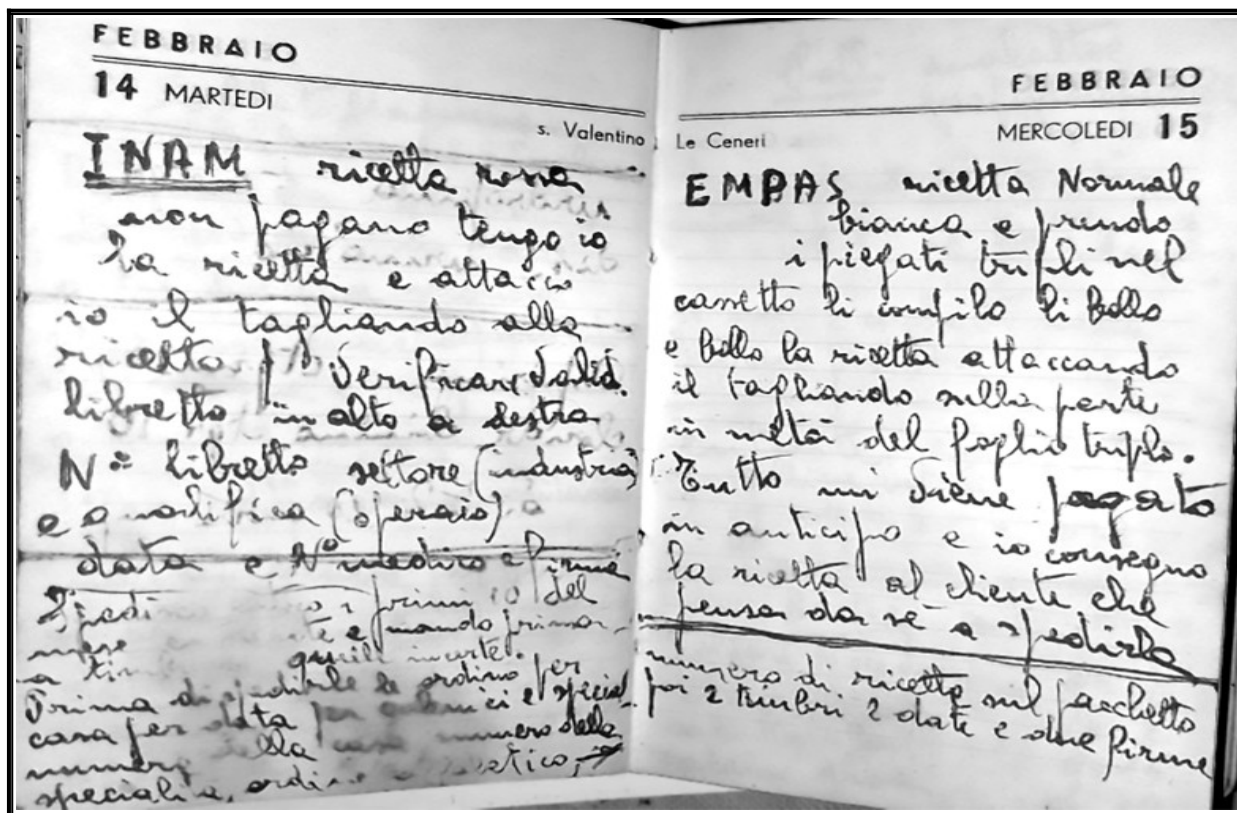 FEBBRAIO
14 MARTEDI
s. Valentino
INAM ricetta rossa
non pagano tengo io
la ricetta e attacco
io il tagliando alla
ricetta Verificare Valid.
libretto in alto a destra
N= libretto settore (industria)
e qualifica (operaio)
data e N° medico e firma
primi 10 del
mese e mando prima
a
Prima di spedirle le ordino per
casa per data per e special
numero della casa numero della
specialità, ordine
FEBBRAIO
MERCOLEDI 15
Le Ceneri
EMPAS ricetta Normale
bianca e prendo
i piegati tripli nel
cassetto li compilo li bollo
e bollo la ricetta attaccando
il tagliando sulla parte
in metà del foglio triplo.
Tutto mi viene pagato
in anticipo e io consegno
la ricetta al cliente che
pensa da sé a spedirla
numero di ricette sul pacchetto
poi 2 timbri 2 date e due firme